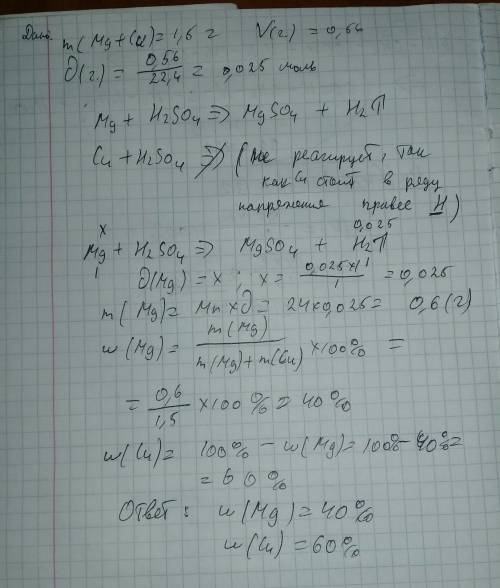 Дано:
m(Mg+Cu)=1,5 г V(г)=0,56
∂(г)= 0,56/22,4 = 0,025 моль
Mg + H2SO4 => MgSO4 + H2↑
Cu + H2SO4 ≠> (не реагирует, так
как Cu стоит в ряду
напряжения правее H)
x 0,025
Mg + H2SO4 => MgSO4 + H2↑
1 1
∂(Mg) = x ; x = 0,025x1/1 = 0,025
m(Mg)= Mr x ∂ = 24x0,025= 0,6(г)
w(Mg) = m(Mg)/m(Mg)+m(Cu) x100% =
= 0,6/1,5 x100% = 40%
w(Cu)= 100% - w(Mg)=100%-40%=
= 60%
Ответ: w(Mg)=40%
w(Cu)=60%